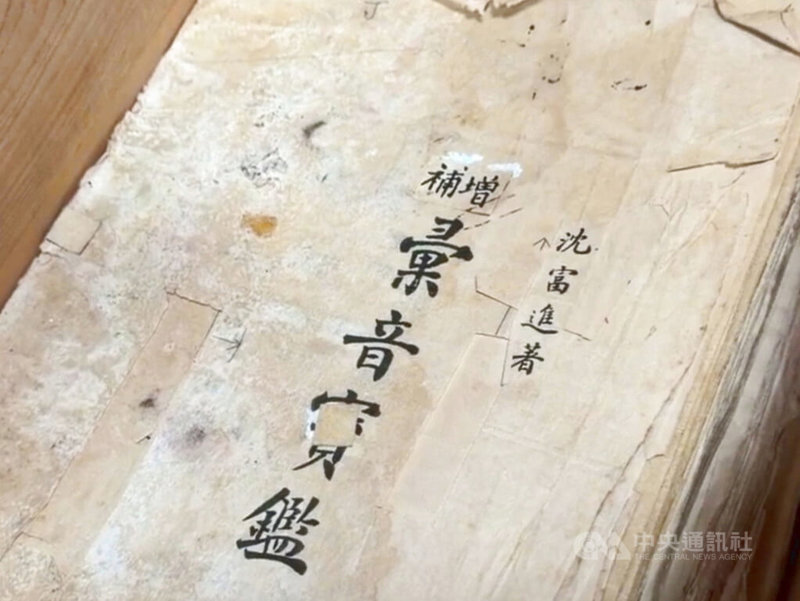 沈富進著
增補
彙音寶鑑
中央通訊社
THE CENTRAL NEWS AGENCY